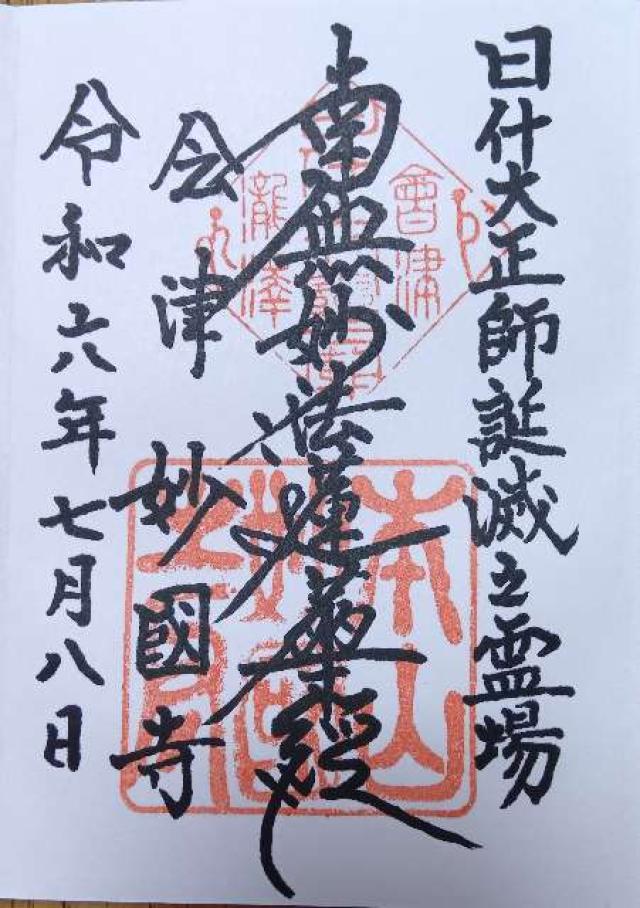 日什大正師誕滅之霊場
南無妙法蓮華経
会津 妙國寺
令和六年七月八日
會津
瀧澤
本山